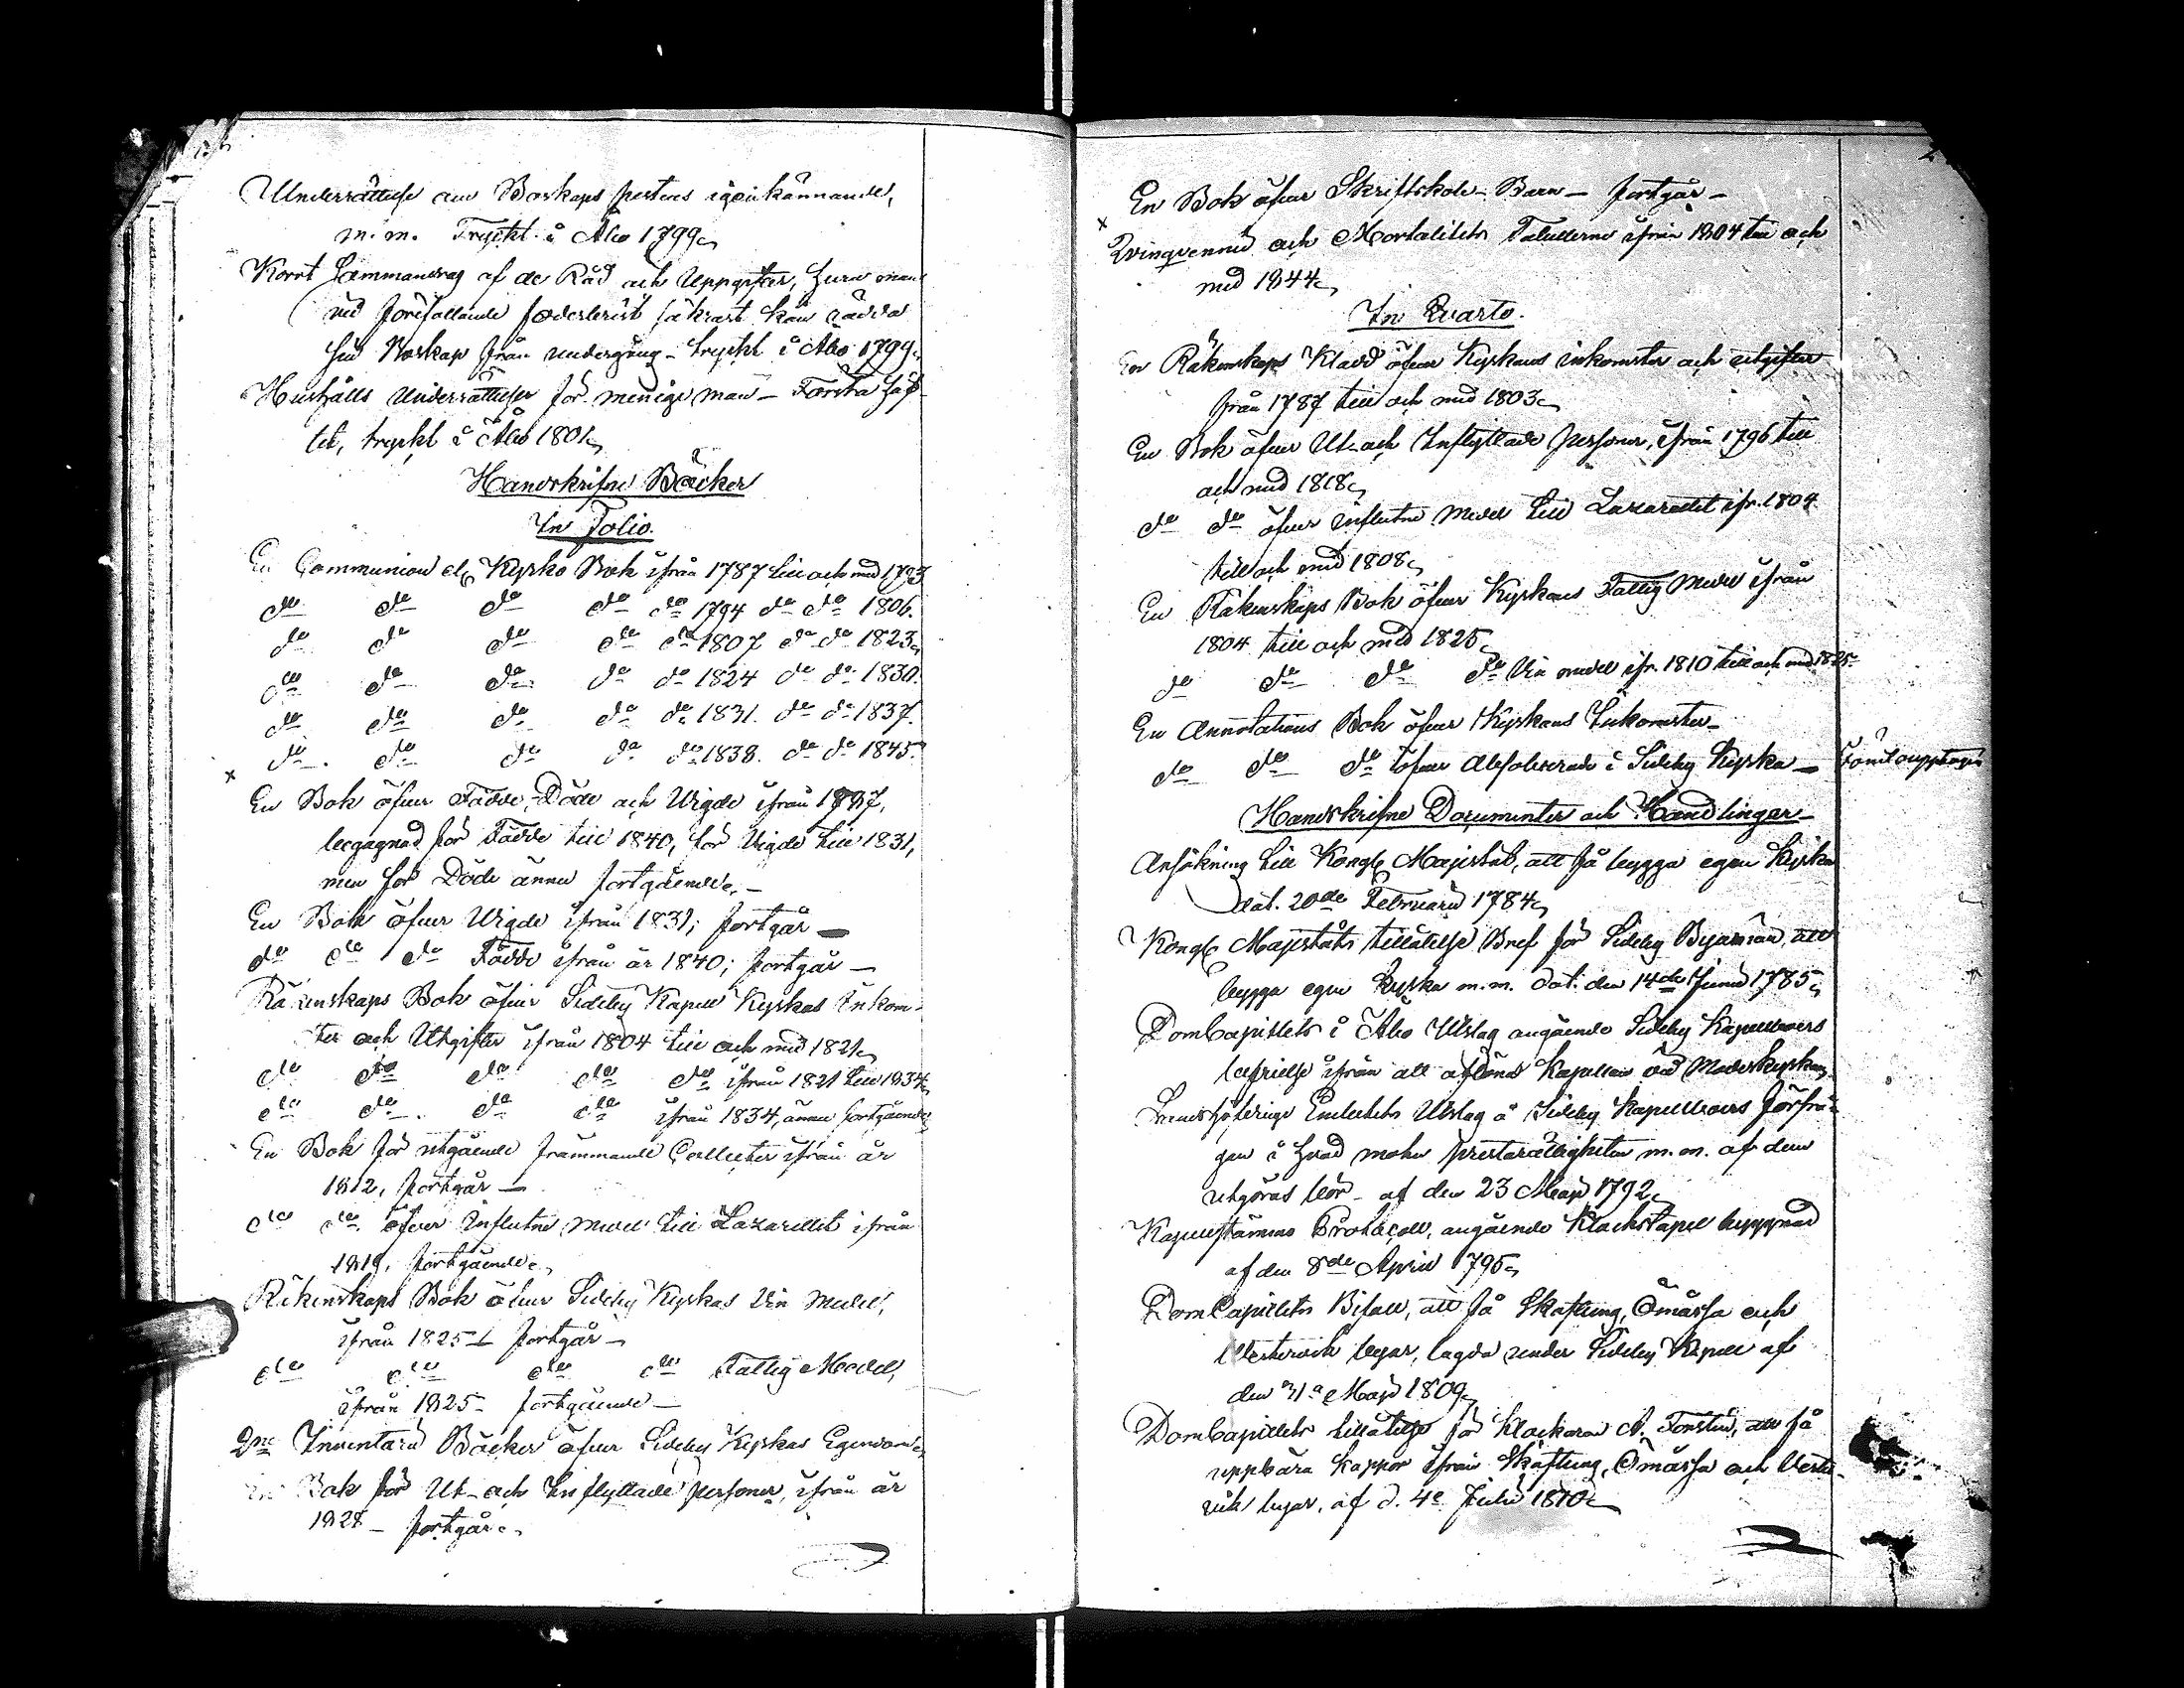 Underrättelse om Boskaps pestens igenkännande,
m.m. Tryckt i Åbo 1799.
Kort Sammandrag af de Råd och Uppgifter, huru man
vid förefallande foderbrist säkrast kan rädda
sin Boskap från undergång - tryckt i Åbo 1799.
Hushålls Underrättelser för menige man - Första häf-
tet, tryckt i Åbo 1801.
Handskrifne Böcker
In Folio.
En Communion el. Kyrko Bok ifrån 1787 till och med 1793
do do do do do 1794 do do 1806.
do do do do do 1807 do do 1823.
do do do do do 1824 do do 1830.
do do do do do 1831. do do 1837.
do do do do do 1838. do do 1845.
x
En Bok öfver Födde, Döde och Vigde ifrån 1787,
begagnad för Födde till 1840, för Vigde till 1831,
men för Döde ännu fortgående. -
En Bok öfver Vigde ifrån 1831; fortgår -
do do do Födde ifrån år 1840; fortgår -
Räkenskaps Bok öfver Sideby Kapell Kyrkas Inkom-
ster och Utgifter ifrån 1804 till och med 1821.
do do do do do ifrån 1821 till 1834.
do do do do ifrån 1834, ännu fortgående
En Bok för utgående främmande Collecter ifrån år
1812, fortgår -
do do öfver Influtne medel till Lazarettet ifrån
1819, fortgående.
Räkenskaps Bok öfver Sideby Kyrkas Vin Medel,
ifrån 1825 - fortgår -
do do do do Fattig Medel,
ifrån 1825 - fortgående -
2ne Inventarii Böcker öfver Sideby Kyrkas Egendom
En Bok för Ut- och Inflyttade personer, ifrån år
1828 - fortgår.
En Bok öfver Skriftskole-Barn - fortgår -
x
Qvinqvennii och Mortalitets Tabellerne ifrån 1804 till och
med 1844.
In Quarto.
En Räkenskaps Kladd öfver Kyrkans inkomster och utgifter
från 1787 till och med 1803.
En Bok öfver Ut- och Inflyttade personer, ifrån 1796 till
och med 1818.
do do öfver influtne Medel till Lazarettet ifr. 1804
till och med 1808.
En Räkenskaps Bok öfver Kyrkans Fattig Medel ifrån
1804 till och med 1825.
do do do do Vin medel ifr. 1810 till och med 1825.
En Annotations Bok öfver Kyrkans Inkomster -
do do do öfver Absolverade i Sideby Kyrka -
Handskrifne Documenter och Handlingar -
Ansökning till Kongl. Majestät, att få bygga egen Kyrka
dat. 20de Februarii 1784.
Kongl. Majestäts tillåtelse Bref för Sideby Byamän, att
bygga egen Kyrka m.m. dat. den 14de Junii 1785.
DomCapitlets i Åbo Utslag angående Sideby Kapellboers
befrielse ifrån att aflöna Kapellan vid Moderkyrkan.
Landshöfdinge Embetets Utslag å Sideby Kapellboers förfrå-
gan i hvad mohn prestarättigheten m.m. af dem
utgöras bör - af den 23 Maji 1792.
Kapellstämmo Protocoll, angående Klockstapel byggnad
af den 8de April 1795.
DomCapitlets Bifall, att få Skaftung, Ömåssa och
Vestervik byar, lagda under Sideby Kapell af
den 31a Maji 1809.
DomCapitlets tillåtelse för Klockaren A. , att få
uppbära Kappor ifrån Skaftung, Ömåssa och Vester-
vik byar, af d. 4e Julii 1810.